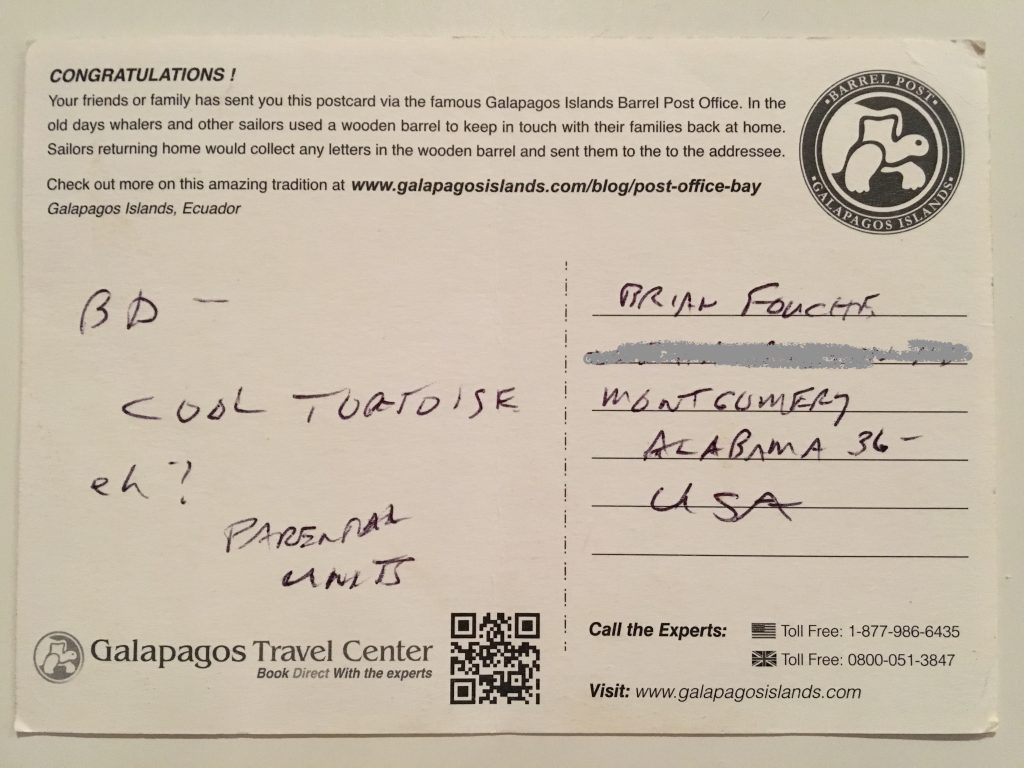 CONGRATULATIONS !
Your friends or family has sent you this postcard via the famous Galapagos Islands Barrel Post Office. In the
old days whalers and other sailors used a wooden barrel to keep in touch with their families back at home.
Sailors returning home would collect any letters in the wooden barrel and sent them to the to the addressee.
Check out more on this amazing tradition at www.galapagosislands.com/blog/post-office-bay
Galapagos Islands, Ecuador
• BARREL POST •
GALAPAGOS ISLANDS
BD -
COOL TORTOISE
eh?
PARENTAL
UNITS
BRIAN FOUCHE
MONTGOMERY
ALABAMA 36-
USA
Galapagos Travel Center
Book Direct With the experts
Call the Experts:
Toll Free: 1-877-986-6435
Toll Free: 0800-051-3847
Visit: www.galapagosislands.com